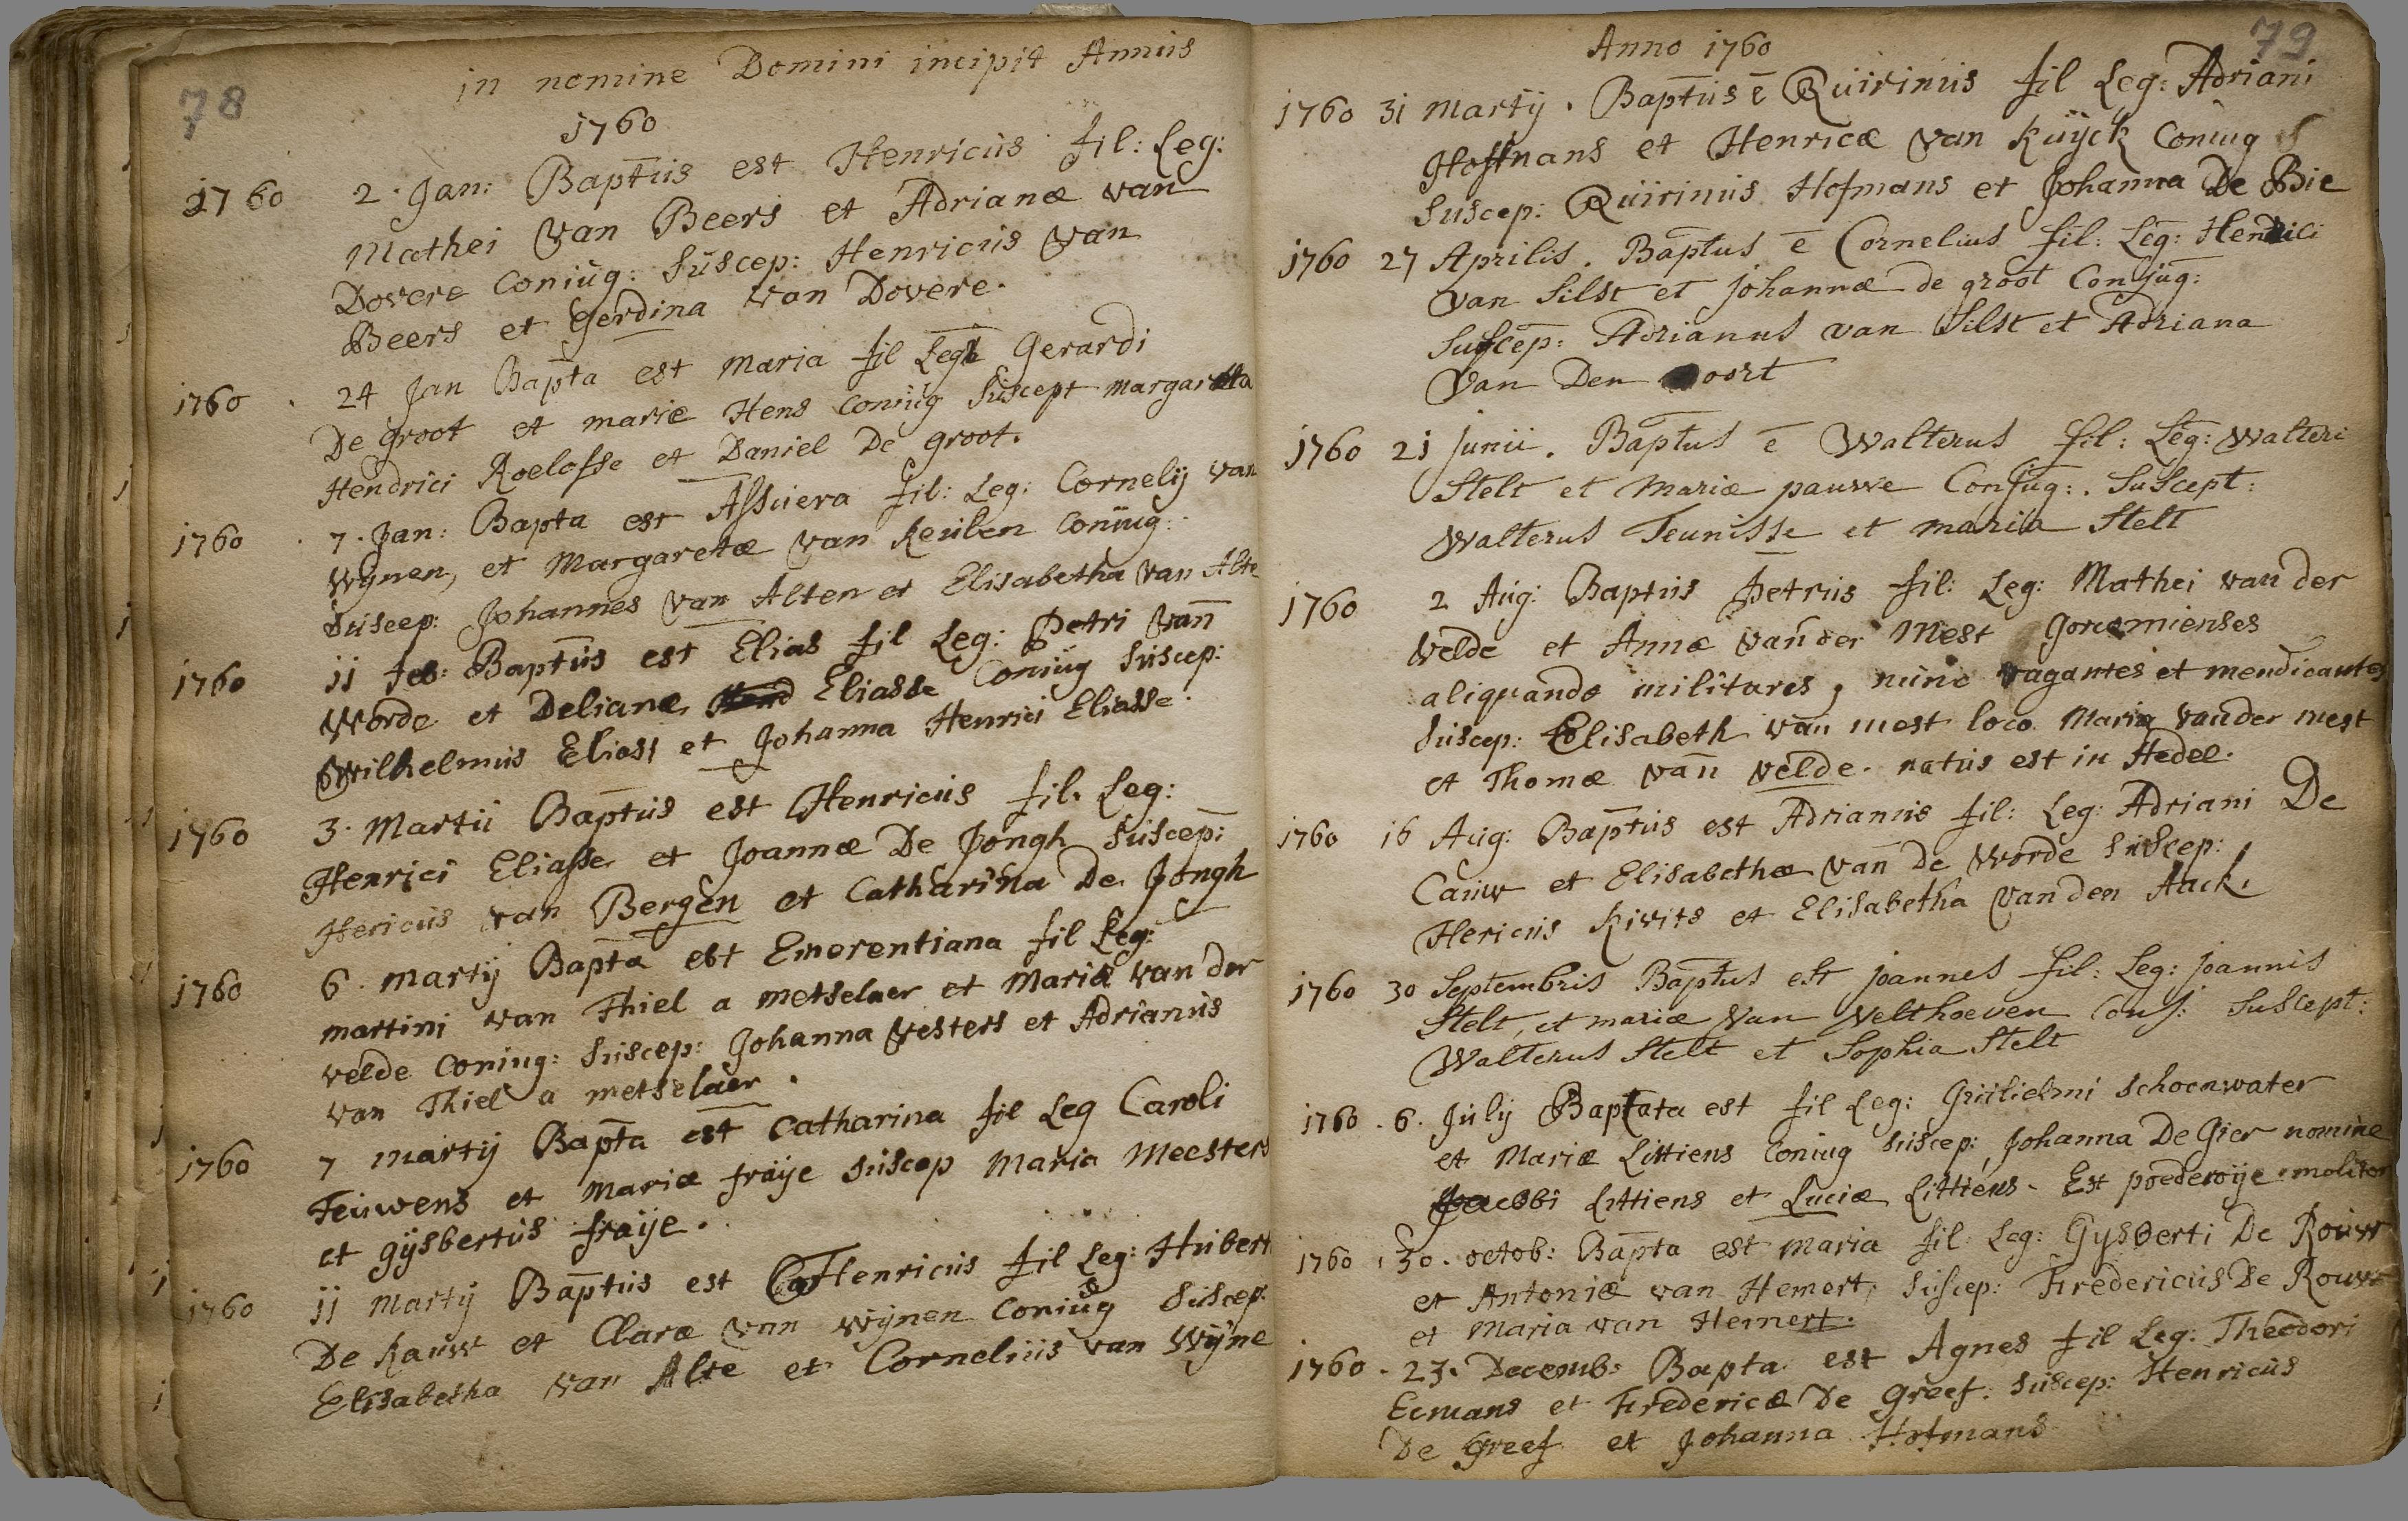 78
in nomine Domini incipit Annus
1760
1760 2. Jan: Baptus est Henricus fil: Leg:
Mathei van Beers et Adrianæ van
Dovere Coniug: Suscep: Henricus van
Beers et Gerdina van Dovere.
1760 . 24 Jan Bapta est Maria fil Leg Gerardi
De Groot et mariæ Hens Coniug Suscept margareta
Hendrici Roelofse et Daniel De groot.
1760 . 7. Jan: Bapta est Assuera fil: Leg: Cornelij van
Wynen, et Margaretæ van Keulen Coniug:
Suscep: Johannes van Alten et Elisabetha van Alte
1760 11 feb: Baptus est Elias fil Leg: Petri van
Worde et Delianæ Eliasse Coniug Suscep:
Wilhelmus Eliass et Johanna Henrici Eliasse.
1760 3. Martii Baptus est Henricus fil. Leg:
Henrici Eliasse et Joannæ De Jongh Suscep:
Hericus van Bergen et Catharina De Jongh
1760 6. martij Bapta est Emerentiana fil Leg:
martini van Thiel a metselaer et Mariæ van der
velde Coniug: Suscep: Johanna Vesters et Adrianus
van Thiel a metselaer.
1760 7 martij Bapta est Catharina fil Leg Caroli
Teuwens et Mariæ fraije Suscep Maria Meesters
et gijsbertus fraije.
1760 11 Martij Baptus est Henricus fil Leg: Hubert
De Rauw et Claræ van Wijnen Coniug Suscep:
Elisabetha van Alte et Cornelius van Wijne
79
Anno 1760
1760 31 Martij. Baptus ē Quirinus fil Leg: Adriani
Hoffmans et Henricæ van Kuijck Coniug
Suscep: Quirinus Hofmans et Johanna De Bie
1760 27 Aprilis. Baptus ē Cornelius fil: Leg: Hendrici
van Silst et Johannæ de groot Conjug:
Suscep: Adrianus van Silst et Adriana
Van Den oort
1760 21 Junii. Baptus ē Walterus fil: Leg: Walteri
Stelt et Mariæ pauwe Conjug:. Suscept:
Walterus Teunisse et maria Stelt
1760 2 Aug: Baptus Petrus fil: Leg: Mathei van der
velde et Annæ van der Mest Gorcomienses
aliquando militares, nunc vagantes et mendicantes
Suscep: Elisabeth van mest loco Maria van der mest
et Thomæ van velde. natus est in Hedel.
1760 16 Aug: Baptus est Adrianus fil: Leg: Adriani De
Cauw et Elisabethæ van De Worde Suscep:
Hericus Kivits et Elisabetha van den Aack.
1760 30 Septembris Baptus est Joannes fil: Leg: Joannis
Stelt, et mariæ Van Velthoeven Conj: Suscept:
Walterus Stelt et Sophia Stelt
1760 . 6. July Baptata est fil Leg: Guilielmi schoonwater
et Mariæ Littiens Coniug Suscep: Johanna De Gier nomine
Jacobi Littiens et Luciæ Littiens. Est poederoije molitor
1760 . 30. octob: Bapta est Maria fil: Leg: Gysberti De Rouw
et Antoniæ van Hemert, Suscep: Fredericus De Rouw
et Maria van Hemert.
1760 . 23. Decemb: Bapta est Agnes fil Leg: Theodori
Ecmans et Fredericæ De Greef: Suscep: Henricus
De Greef et Johanna Hofmans